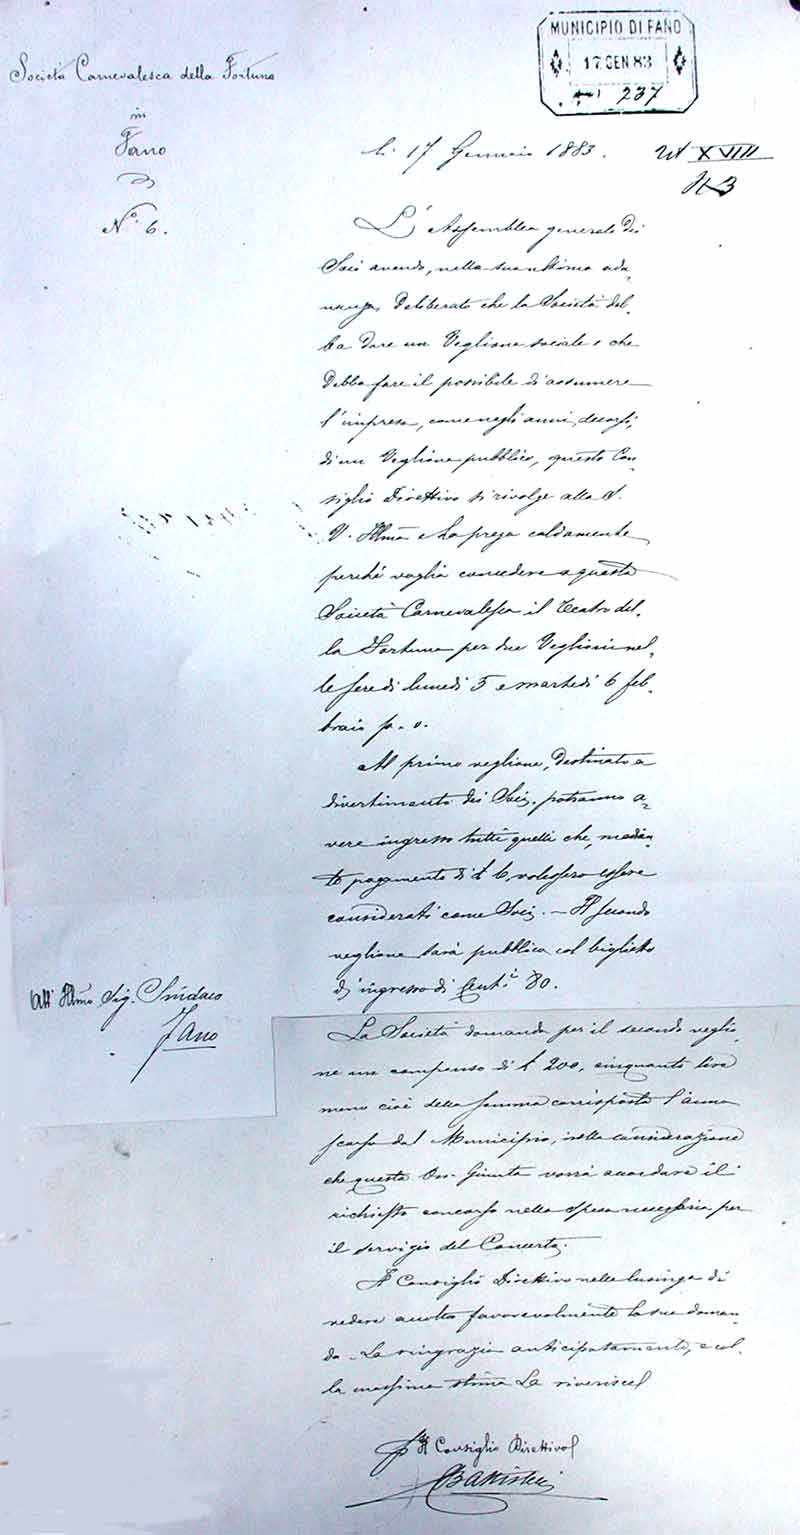 MUNICIPIO DI FANO
17 GEN 83
237
Società Carnevalesca della Fortuna
in
Fano
N.° 6.
li 17 Gennaio 1883.
Tit XVIII
L'Assemblea generale dei
Soci avendo, nella sua ultima adu-
nanza, deliberato che la Società deb-
ba dare un Veglione sociale e che
debba fare il possibile di assumere
l'impresa, come negli anni decorsi,
di un Veglione pubblico, questo Con-
siglio Direttivo si rivolge alla S.
V. Illma e La prega caldamente
perché voglia concedere a questa
Società Carnevalesca il Teatro del-
la Fortuna per due Veglioni nel-
le sere di lunedì 5 e martedì 6 feb-
braio p. v.
Al primo veglione, destinato a
divertimento dei Soci, potranno a-
vere ingresso tutti quelli che, median-
te pagamento di £ 6, volessero essere
considerati come Soci. — Il secondo
veglione sarà pubblico col biglietto
di ingresso di Cent.i 80.
All' Illmo Sig. Sindaco
Fano
La Società domanda per il secondo veglio-
ne un compenso di £ 200, cinquanta lire
meno cioè della somma corrisposta l'anno
scorso dal Municipio, nella considerazione
che questa On. Giunta vorrà accordare il
richiesto concorso nella spesa necessaria per
il servigio del Concerto.
Il Consiglio Direttivo nella lusinga di
vedere accolta favorevolmente la sua doman-
da La ringrazia anticipatamente, e col-
la massima stima La riverisce
Il Consiglio Direttivo
Battistini